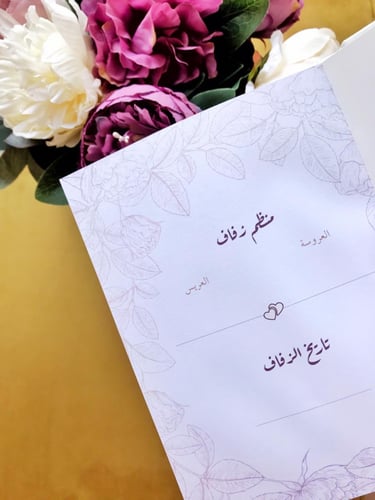 منظم زفاف
العروسة
العريس
تاريخ الزفاف